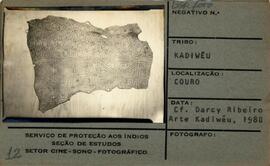 NEGATIVO N.º
TRIBO:
KADIWÉU
LOCALIZAÇÃO:
COURO
DATA:
Cf. Darcy Ribeiro
Arte Kadiwéu, 1980
FOTÓGRAFO:
SERVIÇO DE PROTEÇÃO AOS ÍNDIOS
SEÇÃO DE ESTUDOS
SETOR CINE-SONO-FOTOGRÁFICO
12